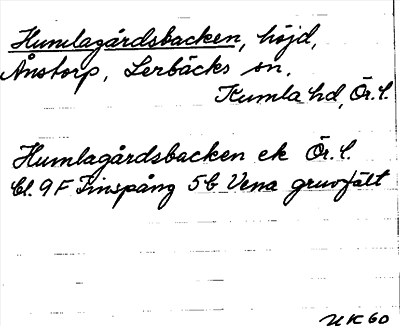 Humlagårdsbacken, höjd,
Ånstorp, Lerbäcks sn,
Kumla hd, Ör. l.
Humlagårdsbacken ek Ör. l.
Bl. 9 F Finspång 5 b Vena gruvfält
UK 60